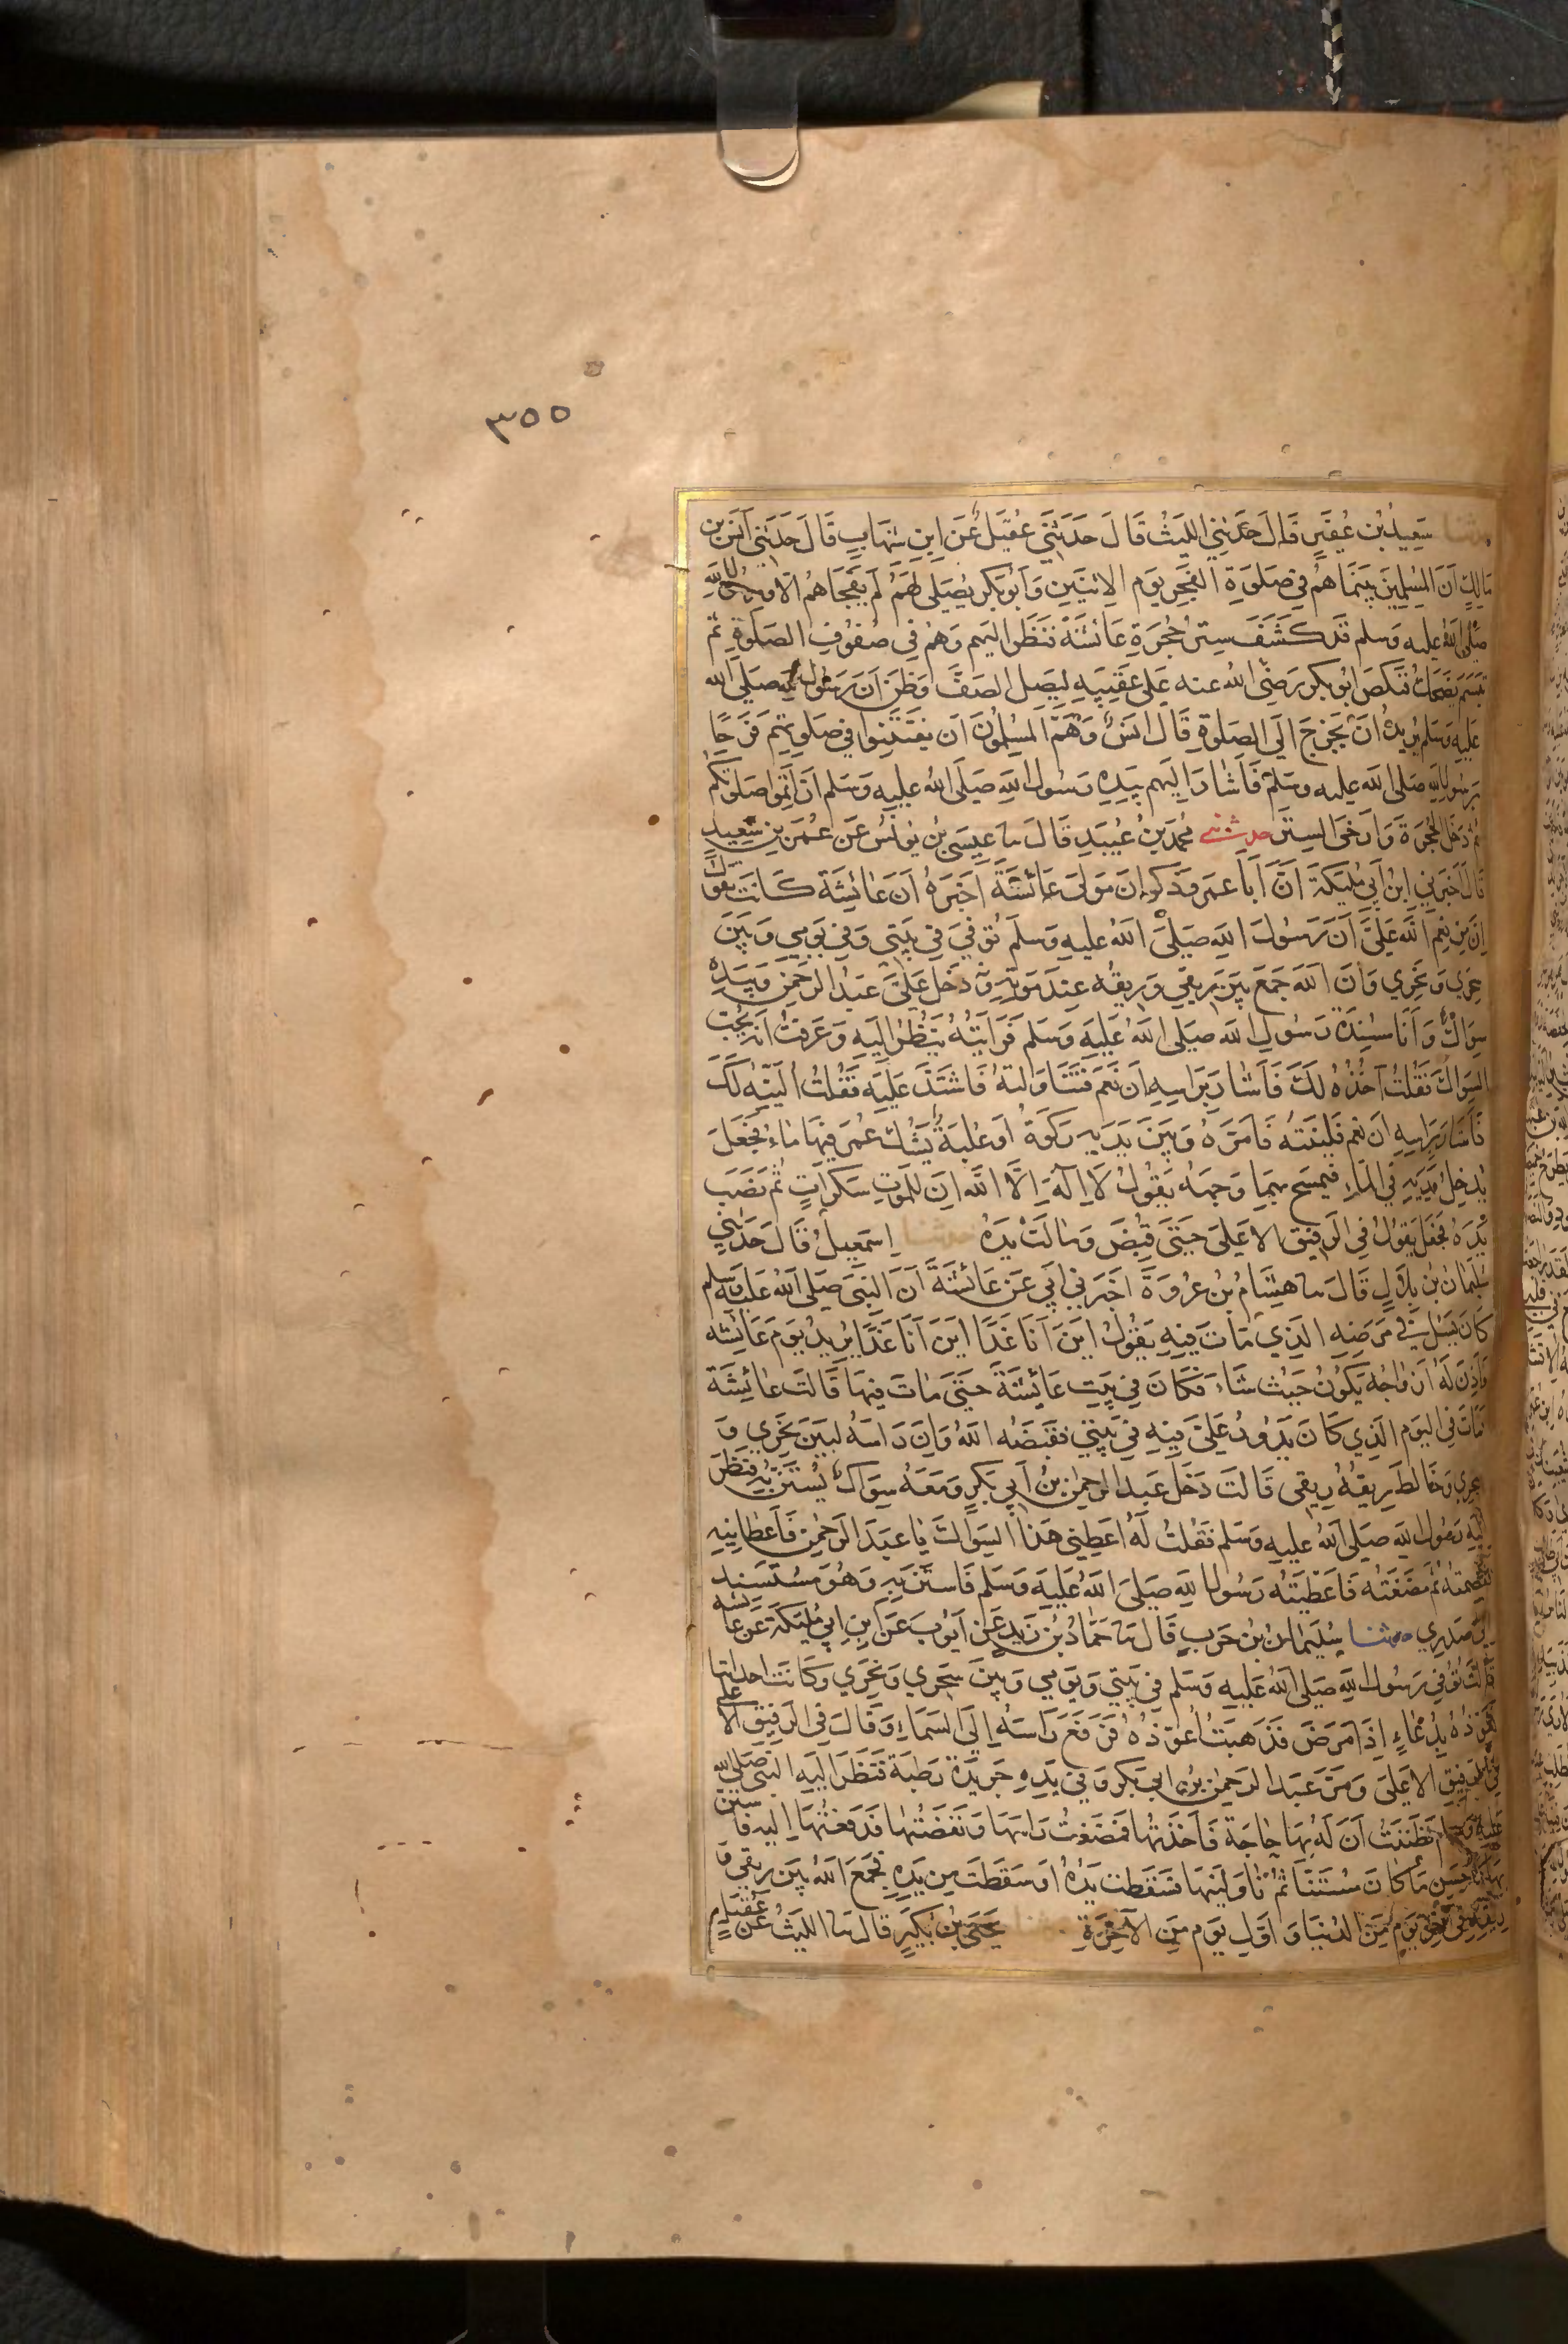 ٣٥٥
حدثنا سَعِيدُ بْن عُفَيرٍ قَالَ حَدَّثَنِي اللَّيثُ قَالَ حَدَّثَنِي عُقَيل عَن ابنِ شِهَابٍ قَالَ حَدَّثَنِي أَنَسُ بن
مَالِكٍ أَنَّ المُسلِمِينَ بَينَمَا هُم فِي صَلَوةِ الفَجرِ يَومَ الاِثنَينِ وَأَبُو بَكر يُصَلِّي لَهُم لَم يَفجَاهُم الا ورسول الله
صلى الله عليه وسلم قَد كَشَفَ سِترَ حُجرَةِ عَائشَةَ فَنَظَرَ اليهم وَهُم فِي صُفُوفِ الصَلَوةِ ثم
تَبَسَّمَ يَضحَكُ فَنَكَصَ ابُو بكر رَضِيَ الله عنه عَلَى عَقِبَيهِ لِيَصِلَ الصَفَّ وَظَنَّ اَنَّ رَسُول الله صَلَى الله
عَلَيهِ وَسَلم يُرِيدُ اَن يَخرُجَ اِلَى الصَلوةِ قَالَ انَسٌ وَهَمَّ المُسلِمُونَ اَن يَفتَتِنُوا فِي صَلوتِهِم فَرَحًا
بِرَسُولِ الله صَلى الله عليه وسَلم فَاَشَارَ اِلَيهِم بِيَدِهِ رَسُولُ اللهِ صَلَى اللهُ عَلَيهِ وَسَلم اَن اَتِمُوا صَلوتَكُم
ثُم دَخَلَ الحُجرَةَ وَاَرخَى السِترَ حدثني مُحَمَّدُ بنُ عُبَيدٍ قَالَ نا عِيسَى بنُ يُونُسَ عَن عُمَرَ بنِ سَعِيدٍ
قَالَ اَخبَرَنِي ابنُ اَبِي مُلَيكَةَ اَنَّ اَبَا عمرو ذكوان مَولَى عَائشَةَ اَخبَرَهُ اَنَّ عَائشَةَ كَانَت تَقُولُ
اِنَّ مِن نِعَمِ اللهِ عَلَيَّ اَنَّ رَسُولَ اللهِ صَلَى اللهُ عليهِ وَسَلَم تُوُفِيَ فِي بَيتِي وَفِي يَومِي وَبَينَ
سَحرِي وَنَحرِي وَاَنَّ اللهَ جَمَعَ بَينَ رِيقِي وَرِيقِهِ عِندَ مَوتِهِ وَ دَخَلَ عَلَيَّ عَبدُ الرَحمنِ وَبِيَدِهِ
سِوَاكٌ وَاَنَا مُسنِدَةٌ رَسُولَ اللهِ صَلَى اللهُ عَلَيهِ وَسَلم فَرَاَيتُهُ يَنظُرُ اِلَيهِ وَعَرَفتُ اَنَّهُ يُحِبُّ
السِوَاكَ فَقُلتُ آخُذُهُ لَكَ فَاَشَارَ بِرَاسِهِ اَن نَعَم فَتَنَاوَلتُهُ فَاشتَدَّ عَلَيهِ فَقُلتُ اُلَيِّنُه لَكَ
فَاَشَارَ بِرَاسِهِ اَن نعم فَلَيَّنتُه فَاَمَرَّهُ وَبَينَ يَدَيهِ رَكوَةٌ اَو عُلبَةٌ يَشُكُّ عُمَر فِيهَا مَاءٌ فَجَعَلَ
يُدخِلُ يَدَيهِ فِي المَاءِ فَيَمسَح بِهِمَا وَجهَهُ يَقُولُ لَا اِلَهَ اِلَّا اللهُ اِنَّ لِلمَوتِ سَكَرَاتٍ ثُم نَصَبَ
يَدَهُ فَجَعَلَ يَقُولُ فِي الرَفِيقِ الاَعلَى حَتَى قُبِضَ وَمَالَت يَدُهُ حدثنا اِسمَعِيلُ قَالَ حَدَثَنِي
سُلَيمَانُ بنُ بِلَالٍ قَالَ نا هِشَامُ بنُ عُروَةَ اَخبَرَنِي اَبِي عَن عَائشَةَ اَنَّ النَبِيَّ صَلَى اللهُ عَلَيهِ وسلم
كَانَ يَسئلُ فِي مَرَضِهِ الَذِي مَاتَ فِيهِ يَقُولُ اَينَ اَنَا غَدًا اَينَ اَنَا غَدًا يُرِيدُ يَومَ عَائشَه
فَاَذِنَ لَهُ اَزوَاجُه يَكُونُ حَيثُ شَاءَ فَكَانَ فِي بَيتِ عَائشَةَ حَتَى مَاتَ فِيهَا قَالَت عَائِشَةُ
فَمَاتَ فِي اليَومِ الَذِي كَانَ يَدُورُ عَلَيَّ فِيهِ فِي بَيتِي فَقَبَضَهُ اللهُ وَاِنَّ رَاسَهُ لَبَينَ نَحرِي وَ
سحرِي وَخَالَطَ رِيقُهُ رِيقِي قَالَت دَخَلَ عَبدُ الرَحمنِ بنُ اَبِي بَكرٍ وَمَعَهُ سِوَاكٌ يَستَنُّ بِهِ فَنَظَرَ
اِلَيهِ رَسُولُ اللهِ صَلَى اللهُ عليهِ وَسَلم فَقُلتُ لَهُ اَعطِنِي هَذَا السِوَاكَ يَا عَبدَ الرَحمنِ فَاَعطَانِيهِ
فقضمته ثُمَّ مَضَغتُه فَاَعطَيتُه رَسُولَ اللهِ صَلَى اللهُ عَلَيهِ وَسَلم فَاستَنَّ بِهِ وَهُوَ مُستَسنِد
اِلَى صَدرِي حدثنا سُلَيمَانُ بنُ حَربٍ قَالَ نا حَمَّادُ بنُ زَيدٍ عَن اَيُوبَ عَن ابنِ اَبِي مُلَيكَةَ عَن عَائشه
قَالَت تُوُفِيَ رَسُولُ اللهِ صَلَى اللهُ عَلَيهِ وَسَلم فِي بَيتِي وَيَومِي وَبَينَ سَحرِي وَنَحرِي وَكَانَت احدانا
تُعَوِّذُهُ بِدُعَاءٍ اِذَا مَرَضَ فَذَهَبتُ اُعَوِّذُهُ فَرَفَعَ رَاسَهُ اِلَى السَمَاءِ وَقَالَ فِي الرَفِيقِ الاعلى
فِي الرفِيقِ الاعلَى وَمَرَّ عَبدُ الرَحمن بن ابي بَكر وَفِي يَدِهِ جَرِيدَةٌ رَطبَةٌ فَنَظَرَ اِلَيهِ النَبِي صلى الله
عليه وسلم فَظَنَنتُ اَنَّ لَهُ بِهَا حَاجَةً فَاَخَذتُهَا فَمَضَغتُ رَاسَهَا وَنَفَضتُهَا فَدَفَعتُهَا اِلَيهِ فاستن
بِهَا كَاَحسَنِ مَا كَانَ مُستَنًّا ثُمَّ نَاوَلَنِيهَا فَسَقَطَت يَدُهُ اَو سَقَطَت مِن يَدِهِ فَجَمَعَ اللهُ بَينَ رِيقِي وَ
رِيقِهِ فِي آخِرِ يَومٍ مِنَ الدُنيَا وَ اَوَّلِ يَوم مِنَ الآخِرَةِ حدثنا يَحيَى بنُ بُكَيرٍ قَالَ نا اللَيثُ عَن عُقَيلٍ